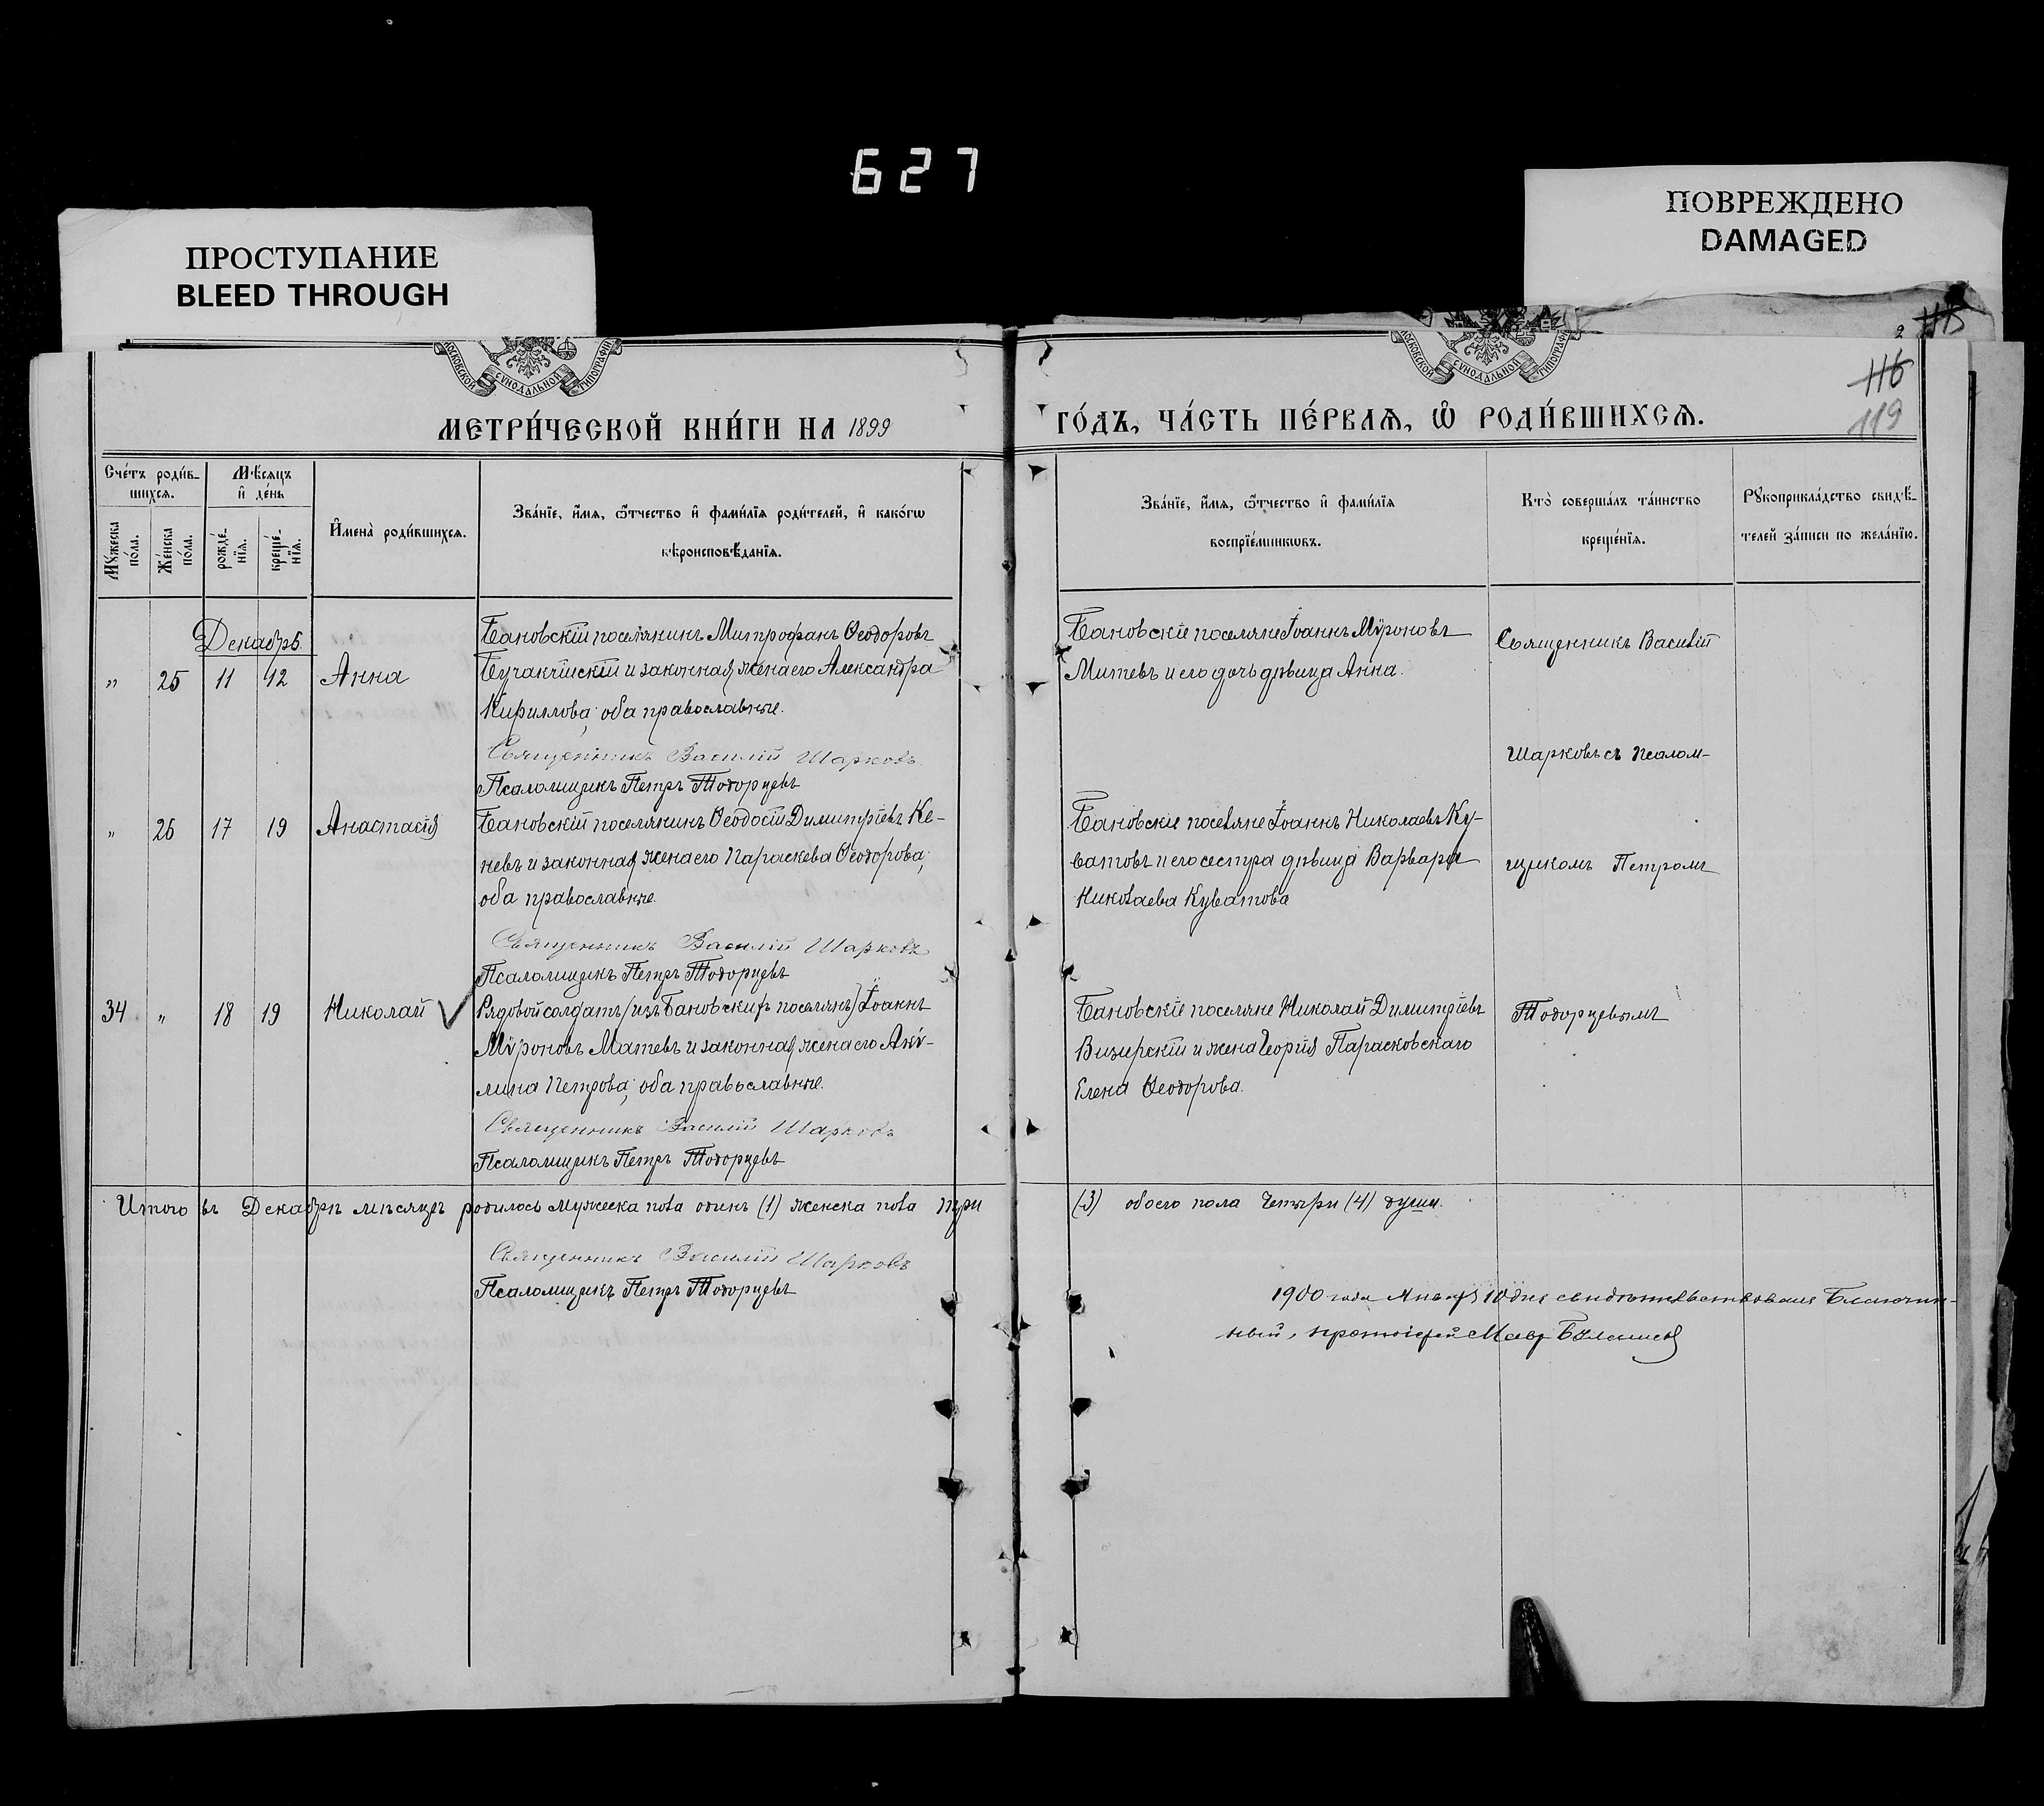 627
ПРОСТУПАНИЕ
BLEED THROUGH
ПОВРЕЖДЕНО
DAMAGED
МОСКОВСКОЙ СУНОДАЛЬНОЙ ТИПОГРАФІИ
МОСКОВСКОЙ СУНОДАЛЬНОЙ ТИПОГРАФІИ
115
116
119
МЕТРИ́ЧЕСКОЙ КНИ́ГИ НА 1899
ГО́ДЪ, ЧА́СТЬ ПЕ́РВАѦ, Ѡ҆ РОДИ́ВШИХСѦ.
Сче́тъ роди́в-
шихсѧ.
Мѣ́сѧцъ
и҆ де́нь
Мꙋ́жеска по́ла.
Же́нска по́ла.
рожде́-
нїѧ.
креще́-
нїѧ.
И҆мена̀ роди́вшихсѧ.
Зва́нїе, и҆́мѧ, ѻ҆́тчество и҆ фами́лїѧ роди́телей, и҆ како́гѡ
вѣроисповѣ́данїѧ.
Зва́нїе, и҆́мѧ, ѻ҆́тчество и҆ фами́лїѧ
воспрїе́мникѡвъ.
Кто̀ соверша́лъ та́инство
креще́нїѧ.
Рꙋкоприкла́дство свидѣ́-
телей за́писи по жела́нїю.
Декабрь
" 25 11 12 Анна
Бановскій поселянинъ Митрофанъ Ѳеодоровъ
Бучакчійскій и законная жена его Александра
Кириллова; оба православные.
Священникъ Василій Шарковъ
Псаломщикъ Петръ Тодорцевъ
Бановскіе поселяне Іоаннъ Мѵроновъ
Митевъ и его дочь дѣвица Анна.
Священникъ Василій
Шарковъ съ псалом-
" 26 17 19 Анастасія
Бановскій поселянинъ Ѳеодосій Димитріевъ Ке-
невъ и законная жена его Параскева Ѳеодорова;
оба православные.
Священникъ Василій Шарковъ
Псаломщикъ Петръ Тодорцевъ
Бановскіе поселяне Іоаннъ Николаевъ Ку-
ватовъ и его сестра дѣвица Варвара
Николаева Куватова
щикомъ Петромъ
34 " 18 19 Николай
Рядовой солдатъ (изъ Бановскихъ поселянъ) Іоаннъ
Мѵроновъ Матевъ и законная жена его Аку-
лина Петрова; оба православные.
Священникъ Василій Шарковъ
Псаломщикъ Петръ Тодорцевъ
Бановскіе поселяне Николай Димитріевъ
Визирскій и жена Георгія Парасковскаго
Елена Ѳеодорова.
Тодорцевымъ
Итого въ Декабрѣ мѣсяцѣ родилось мужеска пола одинъ (1) женска пола три
(3) обоего пола четыри (4) души.
Священникъ Василій Шарковъ
Псаломщикъ Петръ Тодорцевъ
1900 года Января 10 дня свидѣтельствовалъ Благочин-
ный, протоіерей